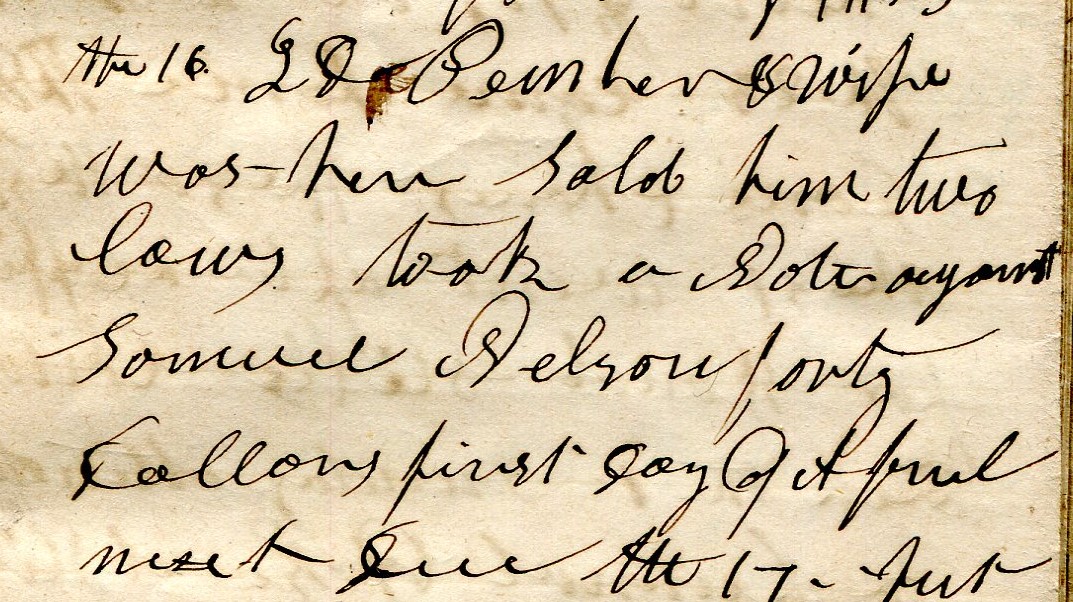 the 16. L D Pember & wife
was here sold him two
Cows took a Note against
Samuel Nelson forty
Dollars first day of April
next Due the 17. Put